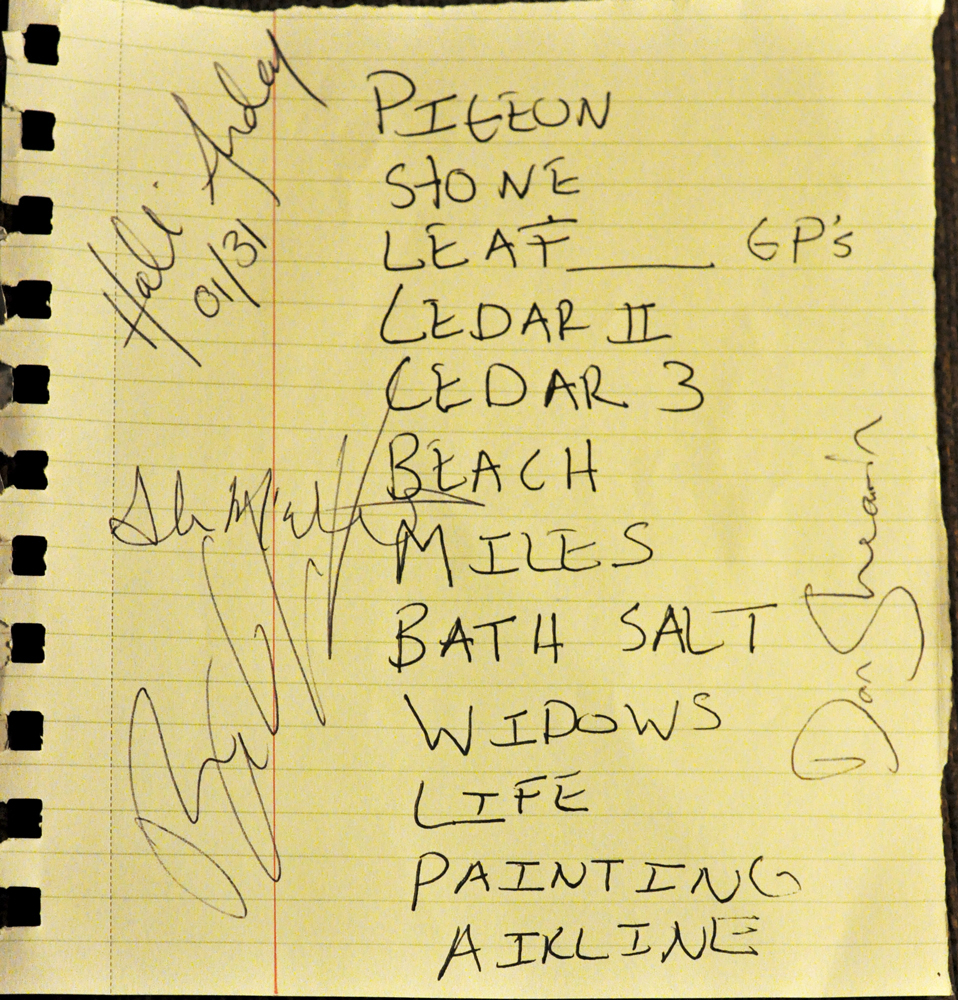 Hali Ardey
01/31
PIGEON
STONE
LEAF____ GP's
CEDAR II
CEDAR 3
BEACH
MILES
BATH SALT
WIDOWS
LIFE
PAINTING
AIRLINE
Dan Shearin